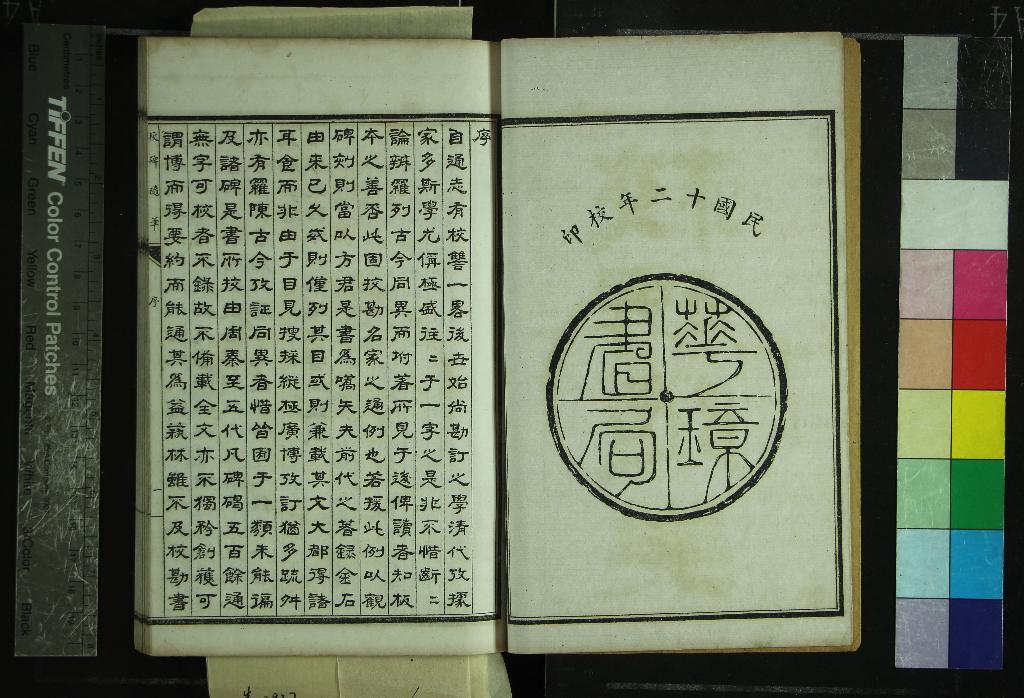 民國十二年校印
華璋
書局
序
自通志有校讐一畧後世始尚勘訂之學清代攷據
家多斯學尤偁極盛往二于一字之是非不惜斷二
論辨羅列古今同異而附著所見于後俾讀者知板
本之善否此固校勘名家之通例也若援此例以觀
碑刻則當以方君是書爲嚆矢夫前代之著錄金石
由来已久或則僅列其目或則兼載其文大都得諸
耳食而非由于目見搜採縱極廣博攷訂猶多疏舛
亦有羅陳古今攷証同異者惜皆囿于一類未能徧
及諸碑是書所校由周秦至五代凡碑碣五百餘通
無字可校者不錄故不備載全文亦不獨矜創獲可
謂博而得要約而能通其爲益藝林雖不及校勘書
校碑隨筆 序 一
TIFFEN Color Control Patches
Centimetres
Blue Cyan Green Yellow Red Magenta White 3/Color Black